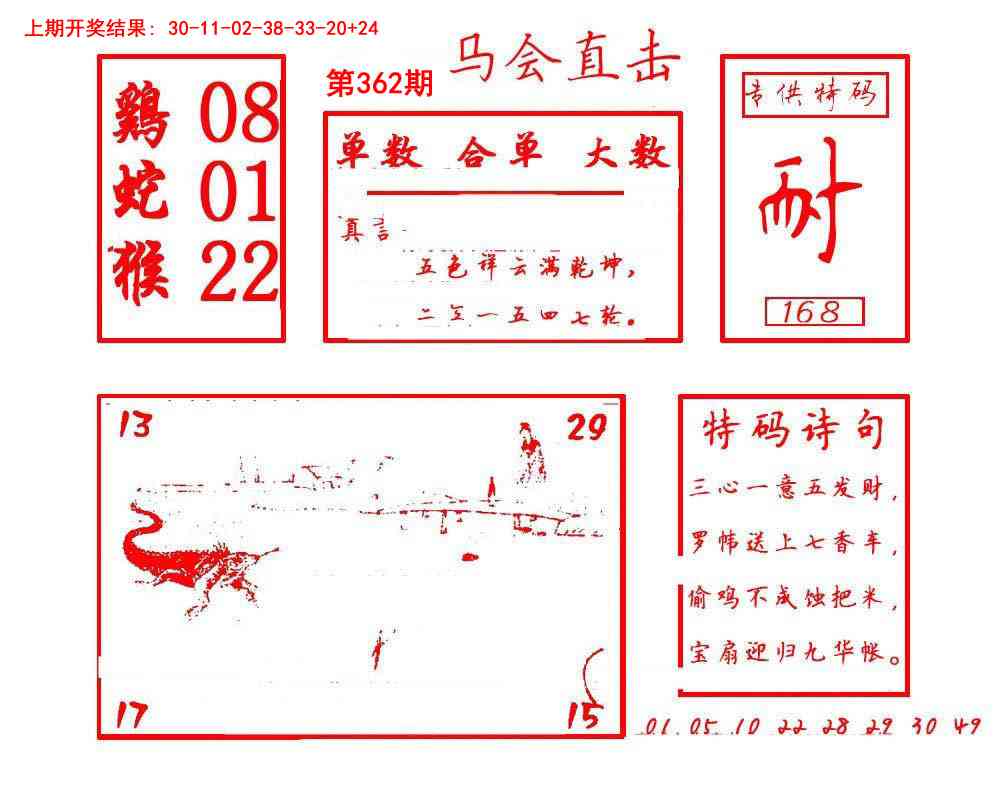 上期开奖结果: 30-11-02-38-33-20+24
马会直击
第362期
鷄 08
蛇 01
猴 22
单数 合单 大数
真言
五色祥云满乾坤,
二三一五四七轮。
专供特码
耐
168
13
29
17
15
特码诗句
三心一意五发财,
罗帏送上七香车,
偷鸡不成蚀把米,
宝扇迎归九华帐。
01.05.10 22 28 29 30 49